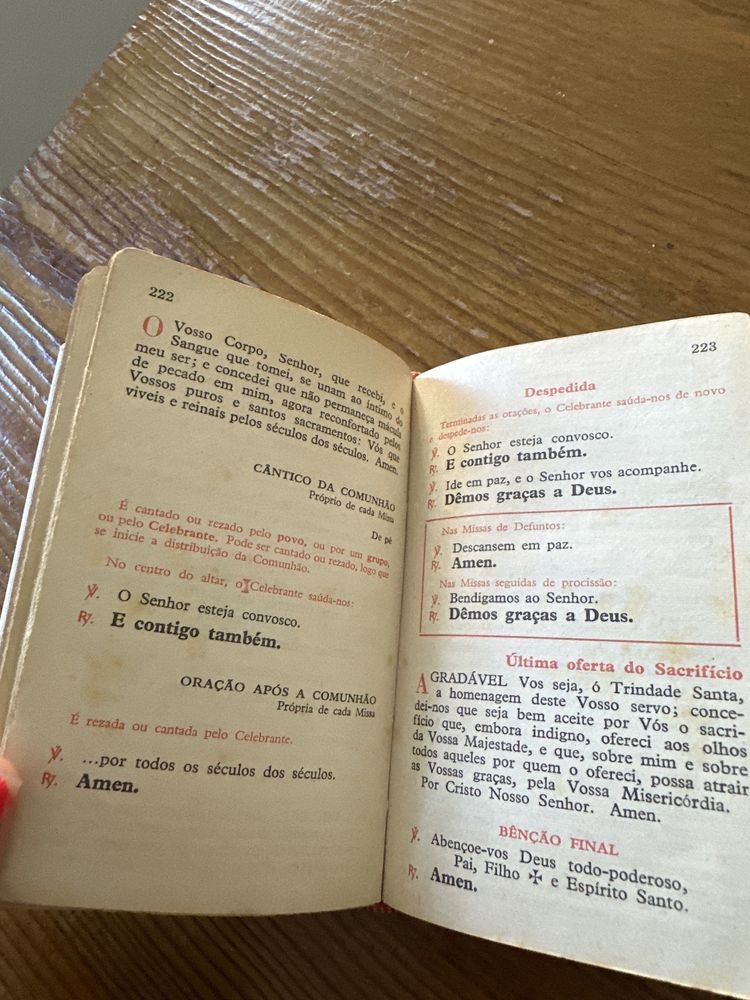 222
O Vosso Corpo, Senhor, que recebi, e o
Sangue que tomei, se unam ao íntimo do
meu ser; e concedei que não permaneça mácula
de pecado em mim, agora reconfortado pelos
Vossos puros e santos sacramentos: Vós que
viveis e reinais pelos séculos dos séculos. Amen.
CÂNTICO DA COMUNHÃO
Próprio de cada Missa
De pé
É cantado ou rezado pelo povo, ou por um grupo,
ou pelo Celebrante. Pode ser cantado ou rezado, logo que
se inicie a distribuição da Comunhão.
No centro do altar, o Celebrante saúda-nos:
℣. O Senhor esteja convosco.
℟. E contigo também.
ORAÇÃO APÓS A COMUNHÃO
Própria de cada Missa
É rezada ou cantada pelo Celebrante.
℣. ...por todos os séculos dos séculos.
℟. Amen.
223
Despedida
Terminadas as orações, o Celebrante saúda-nos de novo
e despede-nos:
℣. O Senhor esteja convosco.
℟. E contigo também.
℣. Ide em paz, e o Senhor vos acompanhe.
℟. Dêmos graças a Deus.
Nas Missas de Defuntos:
℣. Descansem em paz.
℟. Amen.
Nas Missas seguidas de procissão:
℣. Bendigamos ao Senhor.
℟. Dêmos graças a Deus.
Última oferta do Sacrifício
AGRADÁVEL Vos seja, ó Trindade Santa,
a homenagem deste Vosso servo; conce-
dei-nos que seja bem aceite por Vós o sacri-
fício que, embora indigno, ofereci aos olhos
da Vossa Majestade, e que, sobre mim e sobre
todos aqueles por quem o ofereci, possa atrair
as Vossas graças, pela Vossa Misericórdia.
Por Cristo Nosso Senhor. Amen.
BÊNÇÃO FINAL
℣. Abençoe-vos Deus todo-poderoso,
Pai, Filho ✠ e Espírito Santo.
℟. Amen.